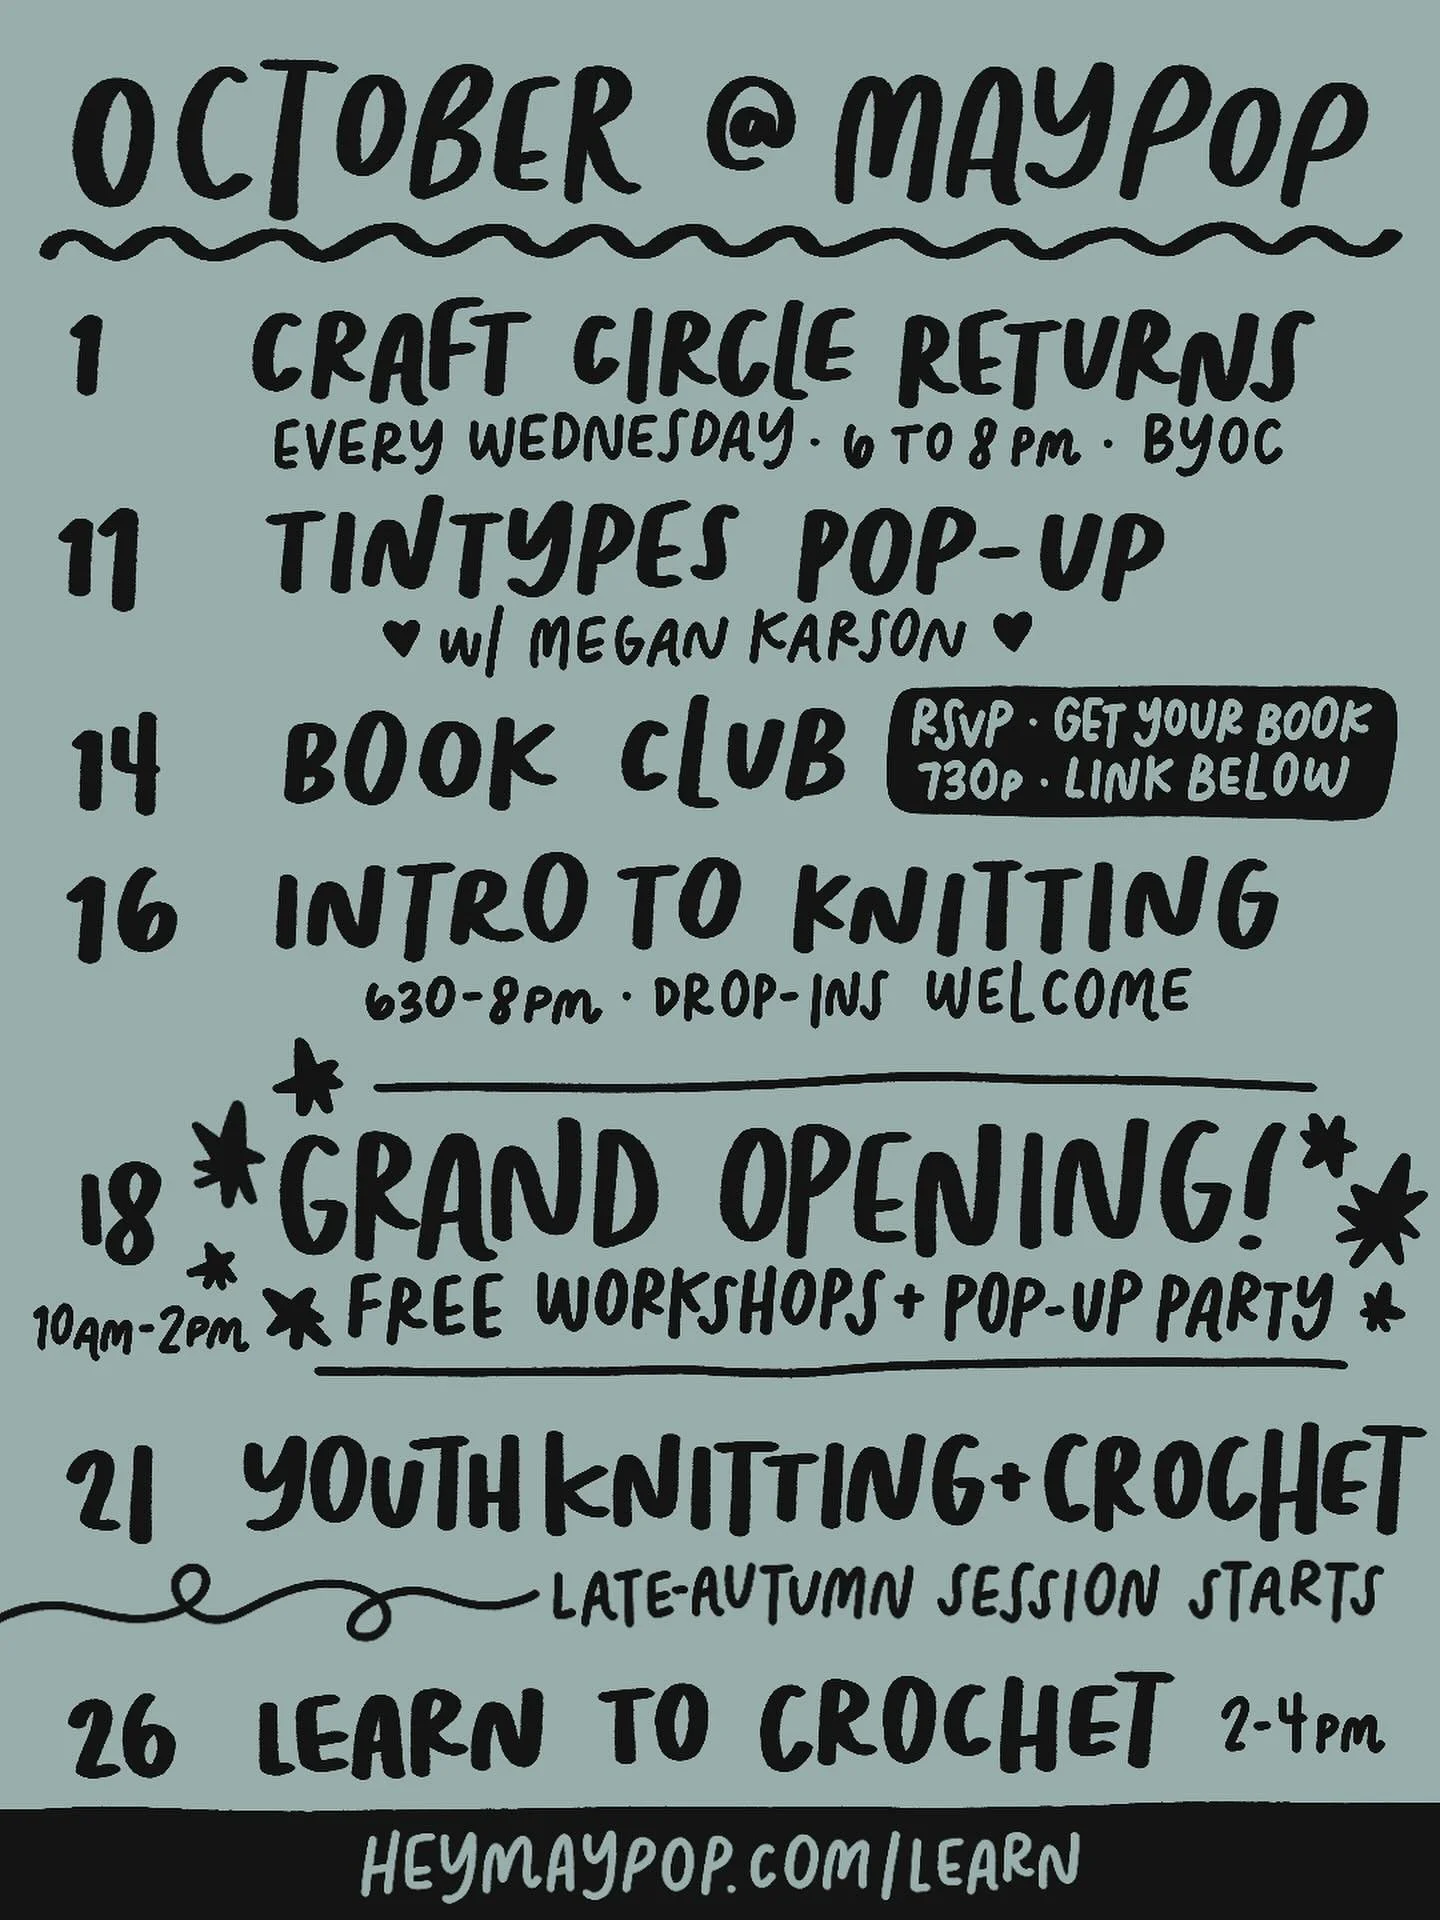 OCTOBER @ MAYPOP
1 CRAFT CIRCLE RETURNS
EVERY WEDNESDAY · 6 TO 8 PM · BYOC
11 TINTYPES POP-UP
♥ W/ MEGAN KARSON ♥
14 BOOK CLUB
RSVP · GET YOUR BOOK
730P · LINK BELOW
16 INTRO TO KNITTING
630-8PM · DROP-INS WELCOME
18 GRAND OPENING!
10AM-2PM FREE WORKSHOPS + POP-UP PARTY
21 YOUTH KNITTING + CROCHET
LATE-AUTUMN SESSION STARTS
26 LEARN TO CROCHET 2-4PM
HEYMAYPOP.COM/LEARN